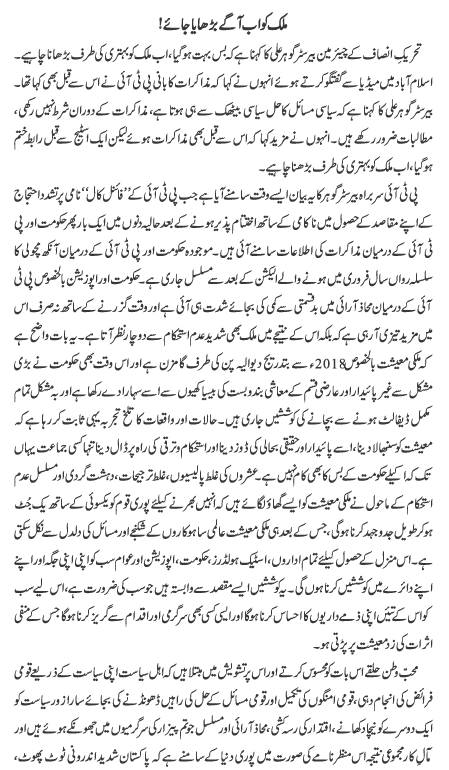 ملک کو اب آگے بڑھایا جائے!
تحریک انصاف کے چیئرمین بیرسٹر گوہر علی کا کہنا ہے کہ بس بہت ہوگیا، اب ملک کو بہتری کی طرف بڑھانا چاہیے۔
اسلام آباد میں میڈیا سے گفتگو کرتے ہوئے انہوں نے کہا کہ مذاکرات کا بانی پی ٹی آئی نے اس سے قبل بھی کہا تھا۔
بیرسٹر گوہر علی کا کہنا ہے کہ سیاسی مسائل کا حل سیاسی بیٹھک سے ہی ہوتا ہے، مذاکرات کے دوران شرط نہیں رکھی،
مطالبات ضرور رکھے ہیں۔ انہوں نے مزید کہا کہ اس سے قبل بھی مذاکرات ہوئے لیکن ایک اسٹیج سے قبل رابطہ ختم
ہوگیا، اب ملک کو بہتری کی طرف بڑھنا چاہیے۔
پی ٹی آئی سربراہ بیرسٹر گوہر کا یہ بیان ایسے وقت سامنے آیا ہے جب پی ٹی آئی کے ”فائنل کال“ نامی پرتشدد احتجاج
کے اپنے مقاصد کے حصول میں ناکامی کے ساتھ اختتام پذیر ہونے کے بعد حالیہ دنوں میں ایک بار پھر حکومت اور پی
ٹی آئی کے درمیان مذاکرات کی اطلاعات سامنے آئی ہیں۔ موجودہ حکومت اور پی ٹی آئی کے درمیان آنکھ مچولی کا
سلسلہ رواں سال فروری میں ہونے والے الیکشن کے بعد سے مسلسل جاری ہے۔ حکومت اور اپوزیشن بالخصوص پی ٹی
آئی کے درمیان محاذ آرائی میں بدقسمتی سے کمی کی بجائے شدت ہی آئی ہے اور وقت گزرنے کے ساتھ نہ صرف اس
میں مزید تیزی آرہی ہے بلکہ اس کے نتیجے میں ملک بھی شدید عدم استحکام سے دوچار نظر آتا ہے۔ یہ بات واضح ہے
کہ ملکی معیشت بالخصوص 2018ء سے بتدریج دیوالیہ پن کی طرف گامزن ہے اور اس وقت بھی حکومت نے بڑی
مشکل سے غیر پائیدار اور عارضی قسم کے معاشی بندوبست کی بیساکھیوں سے اسے سہارا دے رکھا ہے اور بہ مشکل تمام
مکمل ڈیفالٹ ہونے سے بچانے کی کوششیں جاری ہیں۔ حالات اور واقعات کا تلخ تجربہ یہی ثابت کر رہا ہے کہ
معیشت کو سنبھالا دینا، اسے پائیدار اور حقیقی بحالی کی ڈوز دینا اور استحکام و ترقی کی راہ پر ڈال دینا تنہا کسی جماعت یہاں
تک کہ اکیلے حکومت کے بس کا بھی کام نہیں ہے۔ عشروں کی غلط پالیسیوں، غلط ترجیحات، دہشت گردی اور مسلسل عدم
استحکام کے ماحول نے ملکی معیشت کو ایسے گھاؤ لگائے ہیں کہ انہیں بھرنے کیلئے پوری قوم کو یکسوئی کے ساتھ یک جُٹ
ہو کر طویل جدوجہد کرنا ہوگی، جس کے بعد ہی ملکی معیشت عالمی ساہوکاروں کے شکنجے اور مسائل کی دلدل سے نکل سکتی
ہے۔ اس منزل کے حصول کیلئے تمام اداروں، اسٹیک ہولڈرز، حکومت، اپوزیشن اور عوام سب کو اپنی اپنی جگہ اور اپنے
اپنے دائرے میں کوششیں کرنا ہوں گی۔ یہ کوششیں ایسے مقصد سے وابستہ ہیں جو سب کی ضرورت ہے، اس لیے سب
کو اس کے تئیں اپنی ذمے داریوں کا احساس کرنا ہوگا اور ایسی کسی بھی سرگرمی اور اقدام سے گریز کرنا ہوگا جس کے منفی
اثرات کی زد معیشت پر پڑتی ہو۔
محب وطن حلقے اس بات کو محسوس کرتے اور اس پر تشویش میں مبتلا ہیں کہ اہل سیاست اپنی سیاست کے ذریعے قومی
فرائض کی انجام دہی، قومی امنگوں کی تکمیل اور قومی مسائل کے حل کی راہیں ڈھونڈنے کی بجائے سارا زور سیاست کو
ایک دوسرے کو نیچا دکھانے، اقتدار کی رسہ کشی، محاذ آرائی اور مسلسل جوتم پیزار کی سرگرمیوں میں جھونکے ہوئے ہیں اور
مآل کار مجموعی نتیجہ اس منظر نامے کی صورت میں پوری دنیا کے سامنے ہے کہ پاکستان شدید اندرونی ٹوٹ پھوٹ،